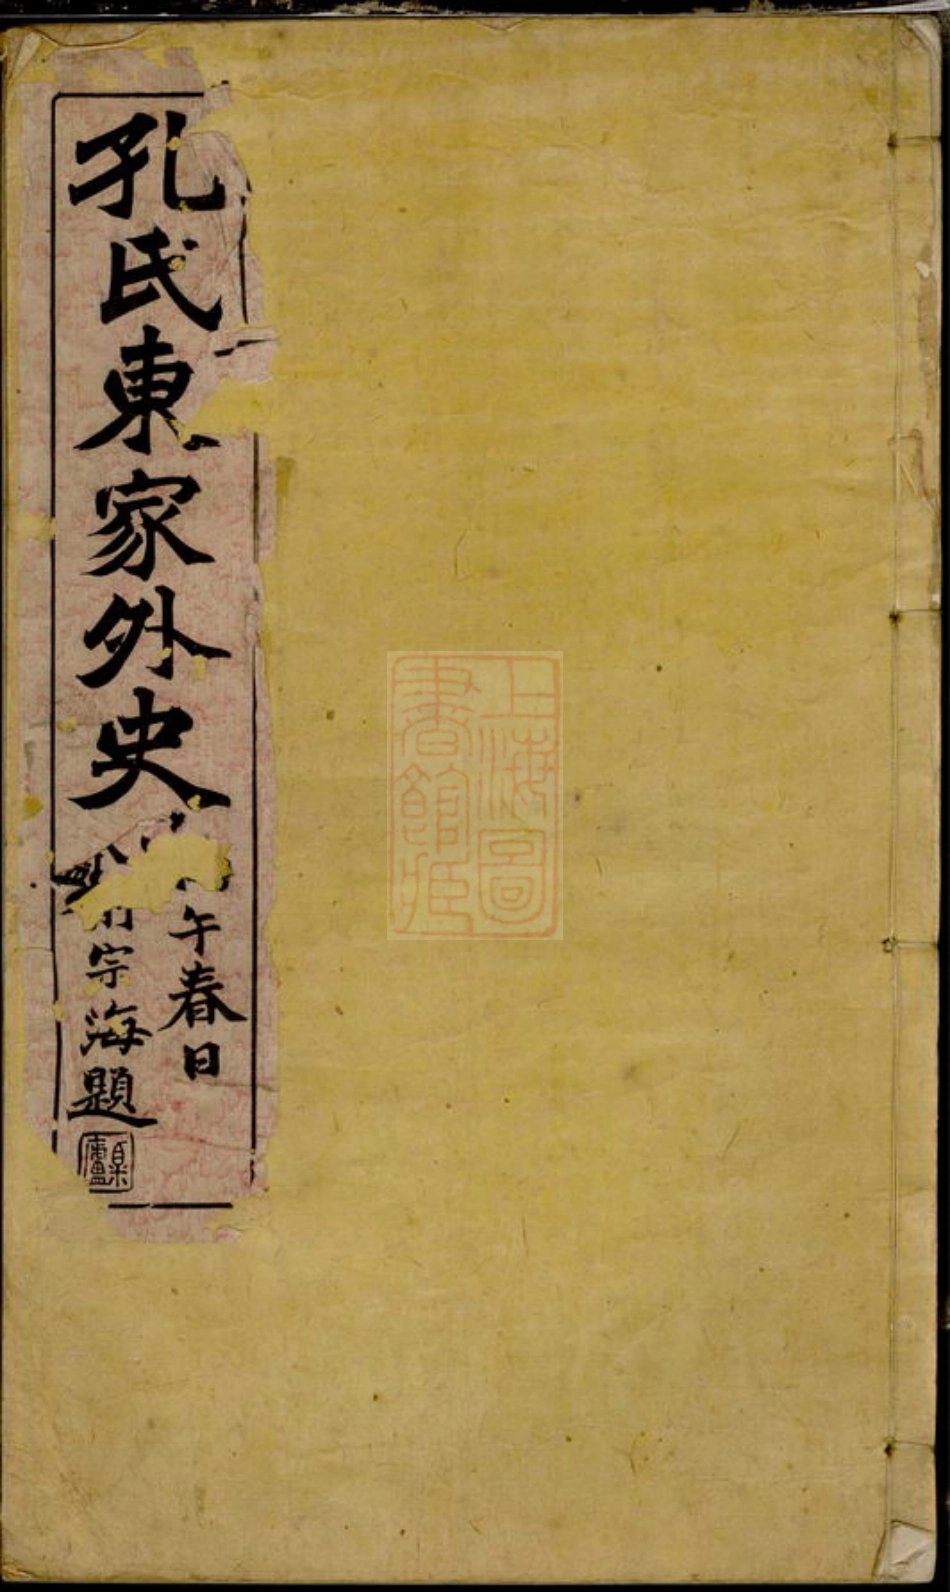 孔氏東家外史
午春日
宗海題
上海圖
書館藏